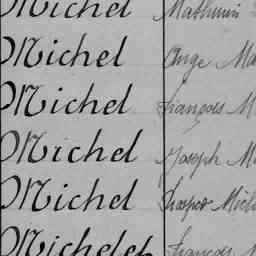 Michel Mathurin
Michel Ange Ma
Michel François M
Michel Joseph Mi
Michel Prosper Mich
Michelet François M